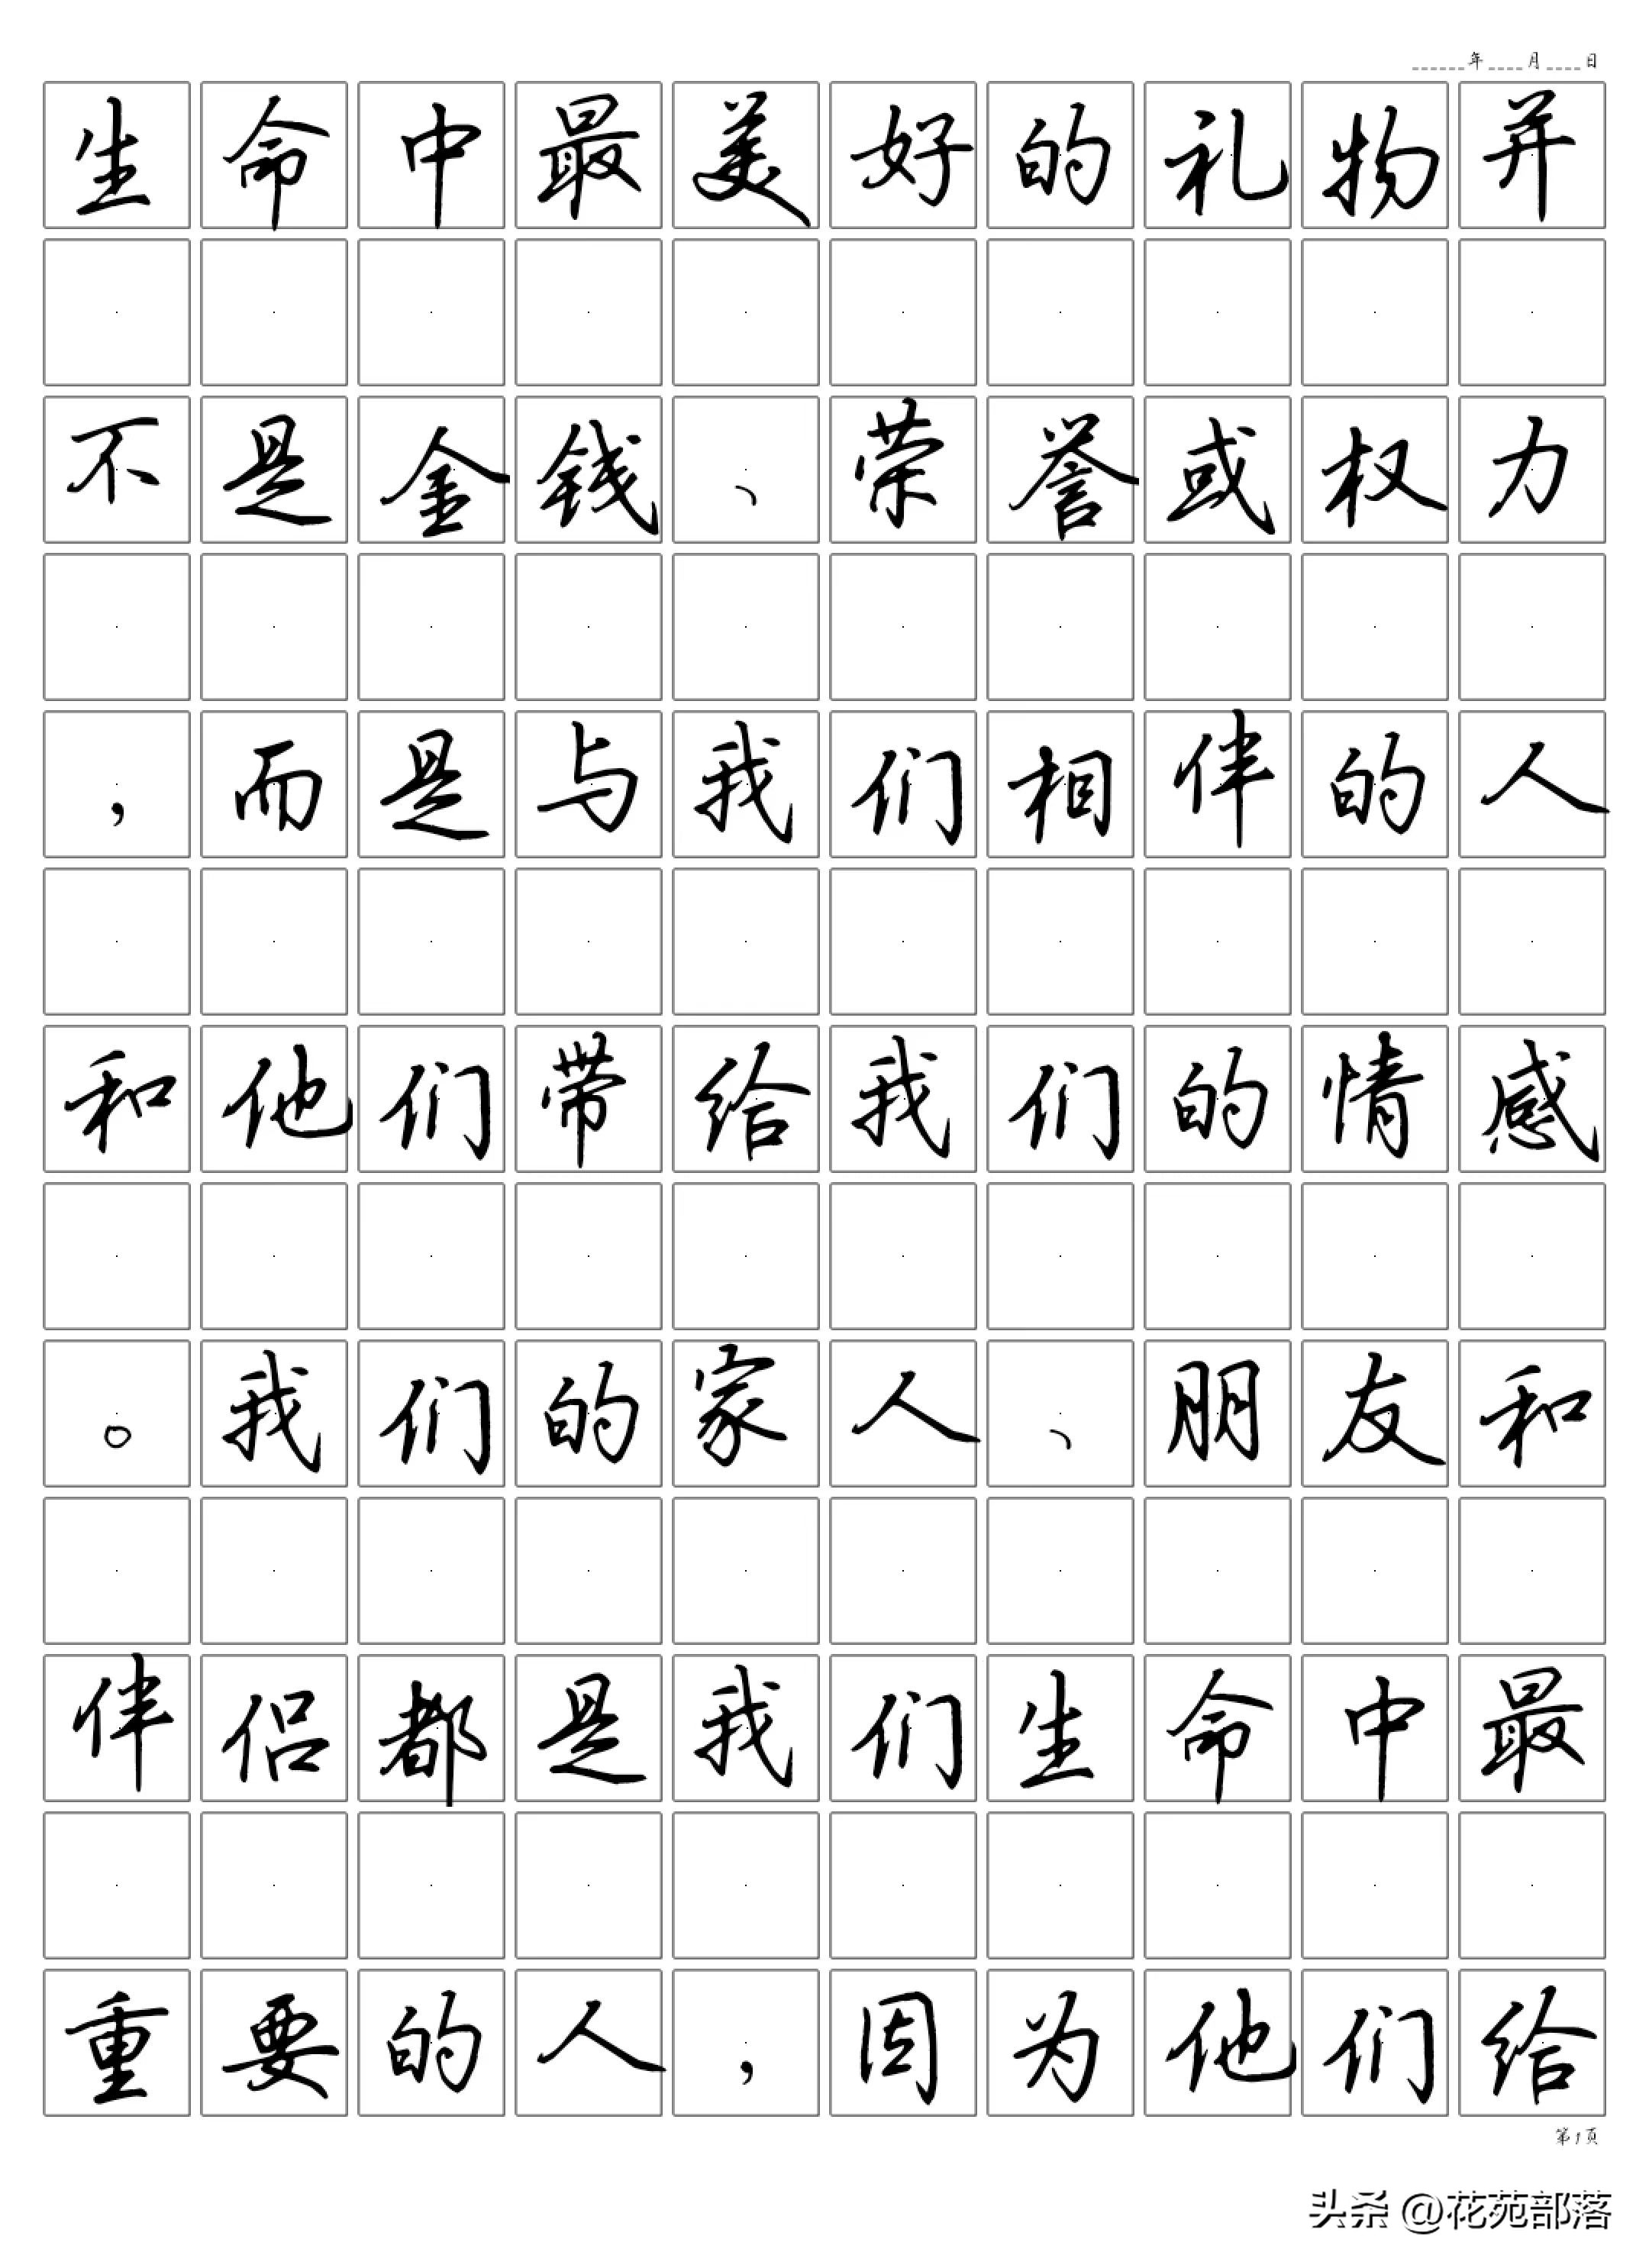 年 月 日
生命中最美好的礼物并
不是金钱、荣誉或权力
，而是与我们相伴的人
和他们带给我们的情感
。我们的家人、朋友和
伴侣都是我们生命中最
重要的人，因为他们给
第1页
头条 @花苑部落